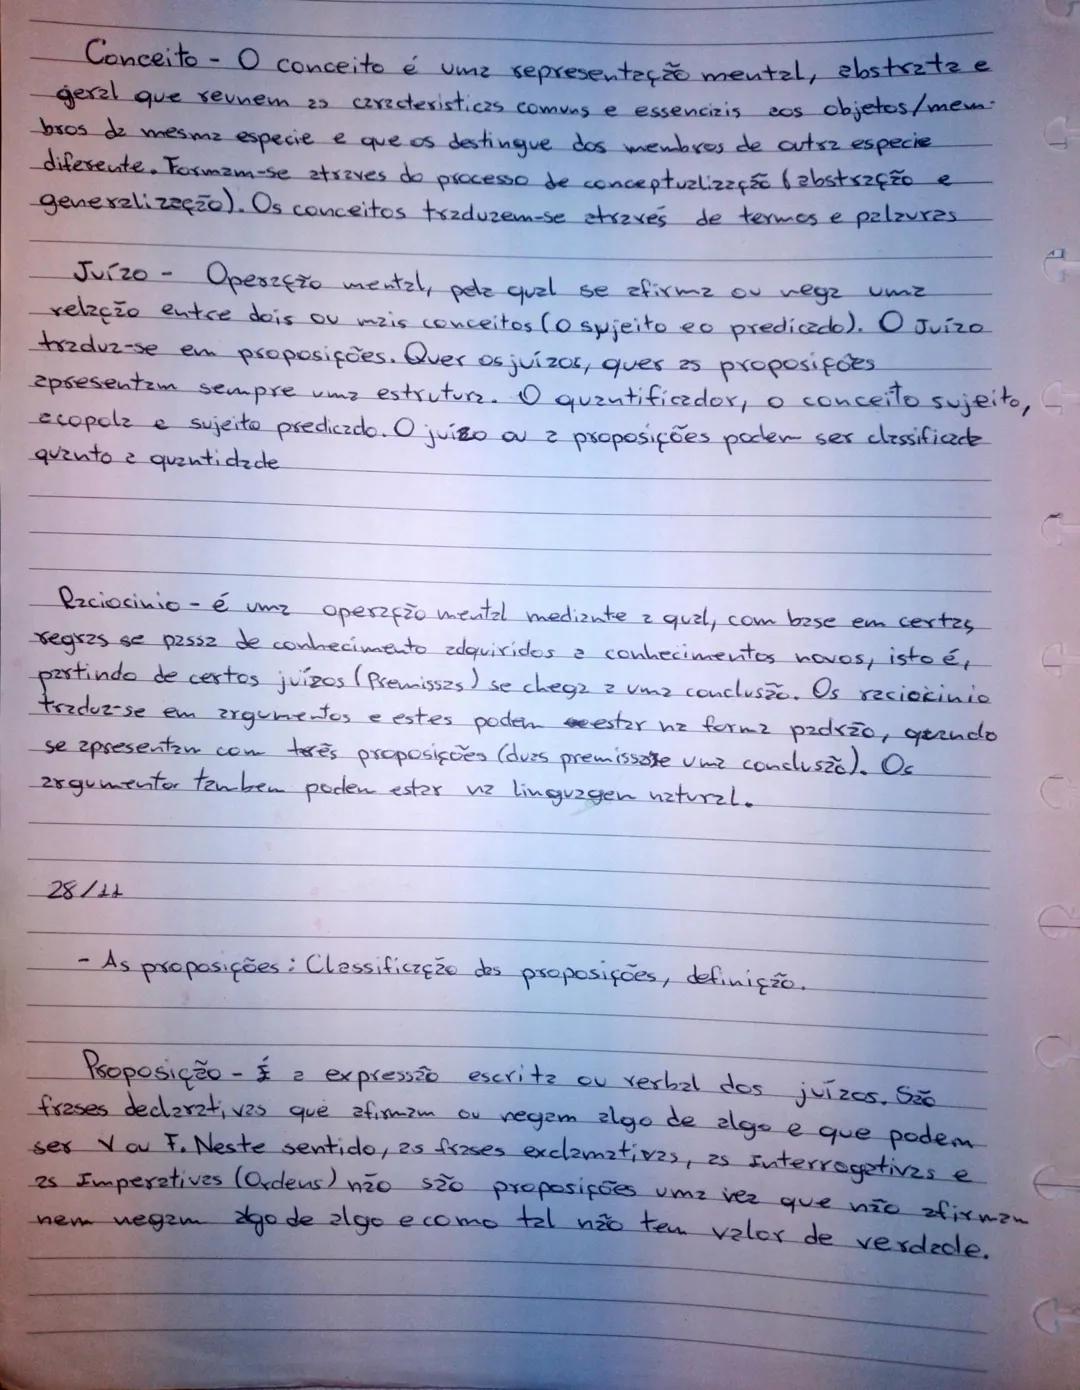 Conceito - O conceito é uma representação mental, abstrata e
geral que reunem as caracteristicas comuns e essenciais aos objetos/mem-
bros da mesma especie e que os destingue dos membros de outra especie
diferente. Formam-se atraves do processo de conceptualização (abstração e
generalização). Os conceitos traduzem-se através de termos e palavras
Juízo - Operação mental, pela qual se afirma ou nega uma
relação entre dois ou mais conceitos (o sujeito e o predicado). O Juízo
traduz-se em proposições. Quer os juízos, quer as proposições
apresentam sempre uma estrutura. O quantificador, o conceito sujeito,
a copola e sujeito predicado. O juízo ou a proposições podem ser classificada
quanto a quantidade
Raciocinio - é uma operação mental mediante a qual, com base em certas
regras se passa de conhecimento adquiridos a conhecimentos novos, isto é,
partindo de certos juízos (Premissas) se chega a uma conclusão. Os raciocinio
traduz-se em argumentos e estes podem estar na forma padrão, quando
se apresentam com três proposições (duas premissas e uma conclusão). Os
argumentor tambem podem estar na linguagen natural.
28/11
- As proposições: Classificação das proposições, definição.
Proposição - É a expressão escrita ou verbal dos juízos. São
frases declarativas que afirmam ou negam algo de algo e que podem
ser V ou F. Neste sentido, as frases exclamativas, as Interrogativas e
as Imperativas (Ordens) não são proposições uma vez que não afirmam
nem negam algo de algo e como tal não tem valor de verdade.